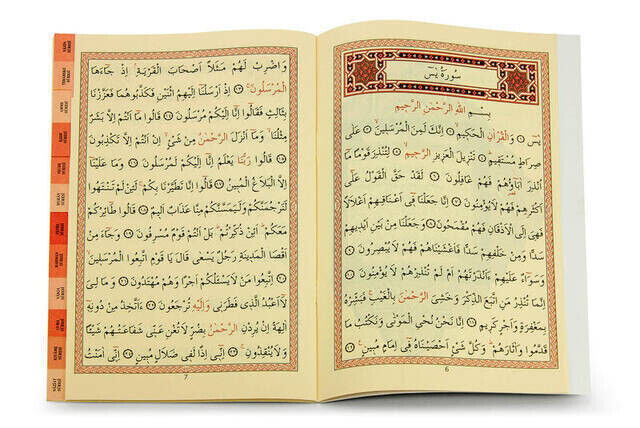 سُورَةُ يٰسٓ
بِسْمِ اللهِ الرَّحْمٰنِ الرَّحِيمِ
يٰسٓ ﴿١﴾ وَالْقُرْاٰنِ الْحَكِيمِ ﴿٢﴾ اِنَّكَ لَمِنَ الْمُرْسَلِينَ ﴿٣﴾ عَلٰى
صِرَاطٍ مُسْتَقِيمٍ ﴿٤﴾ تَنْزِيلَ الْعَزِيزِ الرَّحِيمِ ﴿٥﴾ لِتُنْذِرَ قَوْمًا مَا
اُنْذِرَ اٰبَاؤُهُمْ فَهُمْ غَافِلُونَ ﴿٦﴾ لَقَدْ حَقَّ الْقَوْلُ عَلٰى
اَكْثَرِهِمْ فَهُمْ لَا يُؤْمِنُونَ ﴿٧﴾ اِنَّا جَعَلْنَا فِى اَعْنَاقِهِمْ اَغْلَالًا
فَهِىَ اِلَى الْاَذْقَانِ فَهُمْ مُقْمَحُونَ ﴿٨﴾ وَجَعَلْنَا مِنْ بَيْنِ اَيْدِيهِمْ
سَدًّا وَمِنْ خَلْفِهِمْ سَدًّا فَاَغْشَيْنَاهُمْ فَهُمْ لَا يُبْصِرُونَ ﴿٩﴾
وَسَوَاءٌ عَلَيْهِمْ ءَاَنْذَرْتَهُمْ اَمْ لَمْ تُنْذِرْهُمْ لَا يُؤْمِنُونَ ﴿١٠﴾
اِنَّمَا تُنْذِرُ مَنِ اتَّبَعَ الذِّكْرَ وَخَشِىَ الرَّحْمٰنَ بِالْغَيْبِ فَبَشِّرْهُ
بِمَغْفِرَةٍ وَاَجْرٍ كَرِيمٍ ﴿١١﴾ اِنَّا نَحْنُ نُحْيِ الْمَوْتٰى وَنَكْتُبُ مَا
قَدَّمُوا وَاٰثَارَهُمْ وَكُلَّ شَىْءٍ اَحْصَيْنَاهُ فِى اِمَامٍ مُبِينٍ ﴿١٢﴾
6
وَاضْرِبْ لَهُمْ مَثَلًا اَصْحَابَ الْقَرْيَةِ اِذْ جَاءَهَا
الْمُرْسَلُونَ ﴿١٣﴾ اِذْ اَرْسَلْنَا اِلَيْهِمُ اثْنَيْنِ فَكَذَّبُوهُمَا فَعَزَّزْنَا
بِثَالِثٍ فَقَالُوا اِنَّا اِلَيْكُمْ مُرْسَلُونَ ﴿١٤﴾ قَالُوا مَا اَنْتُمْ اِلَّا بَشَرٌ
مِثْلُنَا وَمَا اَنْزَلَ الرَّحْمٰنُ مِنْ شَىْءٍ اِنْ اَنْتُمْ اِلَّا تَكْذِبُونَ
﴿١٥﴾ قَالُوا رَبُّنَا يَعْلَمُ اِنَّا اِلَيْكُمْ لَمُرْسَلُونَ ﴿١٦﴾ وَمَا عَلَيْنَا
اِلَّا الْبَلَاغُ الْمُبِينُ ﴿١٧﴾ قَالُوا اِنَّا تَطَيَّرْنَا بِكُمْ لَئِنْ لَمْ تَنْتَهُوا
لَنَرْجُمَنَّكُمْ وَلَيَمَسَّنَّكُمْ مِنَّا عَذَابٌ اَلِيمٌ ﴿١٨﴾ قَالُوا طَائِرُكُمْ
مَعَكُمْ اَئِنْ ذُكِّرْتُمْ بَلْ اَنْتُمْ قَوْمٌ مُسْرِفُونَ ﴿١٩﴾ وَجَاءَ مِنْ
اَقْصَا الْمَدِينَةِ رَجُلٌ يَسْعٰى قَالَ يَا قَوْمِ اتَّبِعُوا الْمُرْسَلِينَ
﴿٢٠﴾ اِتَّبِعُوا مَنْ لَا يَسْـَٔلُكُمْ اَجْرًا وَهُمْ مُهْتَدُونَ ﴿٢١﴾ وَمَا لِىَ
لَا اَعْبُدُ الَّذِى فَطَرَنِى وَاِلَيْهِ تُرْجَعُونَ ﴿٢٢﴾ ءَاَتَّخِذُ مِنْ دُونِهِ
اٰلِهَةً اِنْ يُرِدْنِ الرَّحْمٰنُ بِضُرٍّ لَا تُغْنِ عَنِّى شَفَاعَتُهُمْ شَيْئًا
وَلَا يُنْقِذُونِ ﴿٢٣﴾ اِنِّى اِذًا لَفِى ضَلَالٍ مُبِينٍ ﴿٢٤﴾ اِنِّى اٰمَنْتُ
7